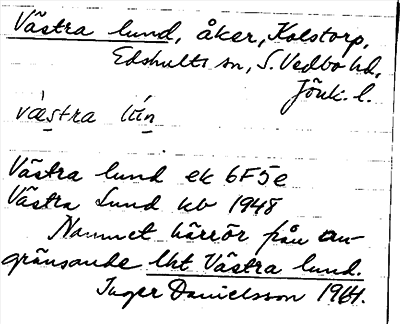 Västra lund, åker, Kolstorp,
Edshults sn, S. Vedbo hd,
Jönk. l.
västra lún
Västra lund ek 6F5e
Västra Lund kb 1948
Namnet härrör från an-
gränsande lht Västra lund.
Inger Danielsson 1964.